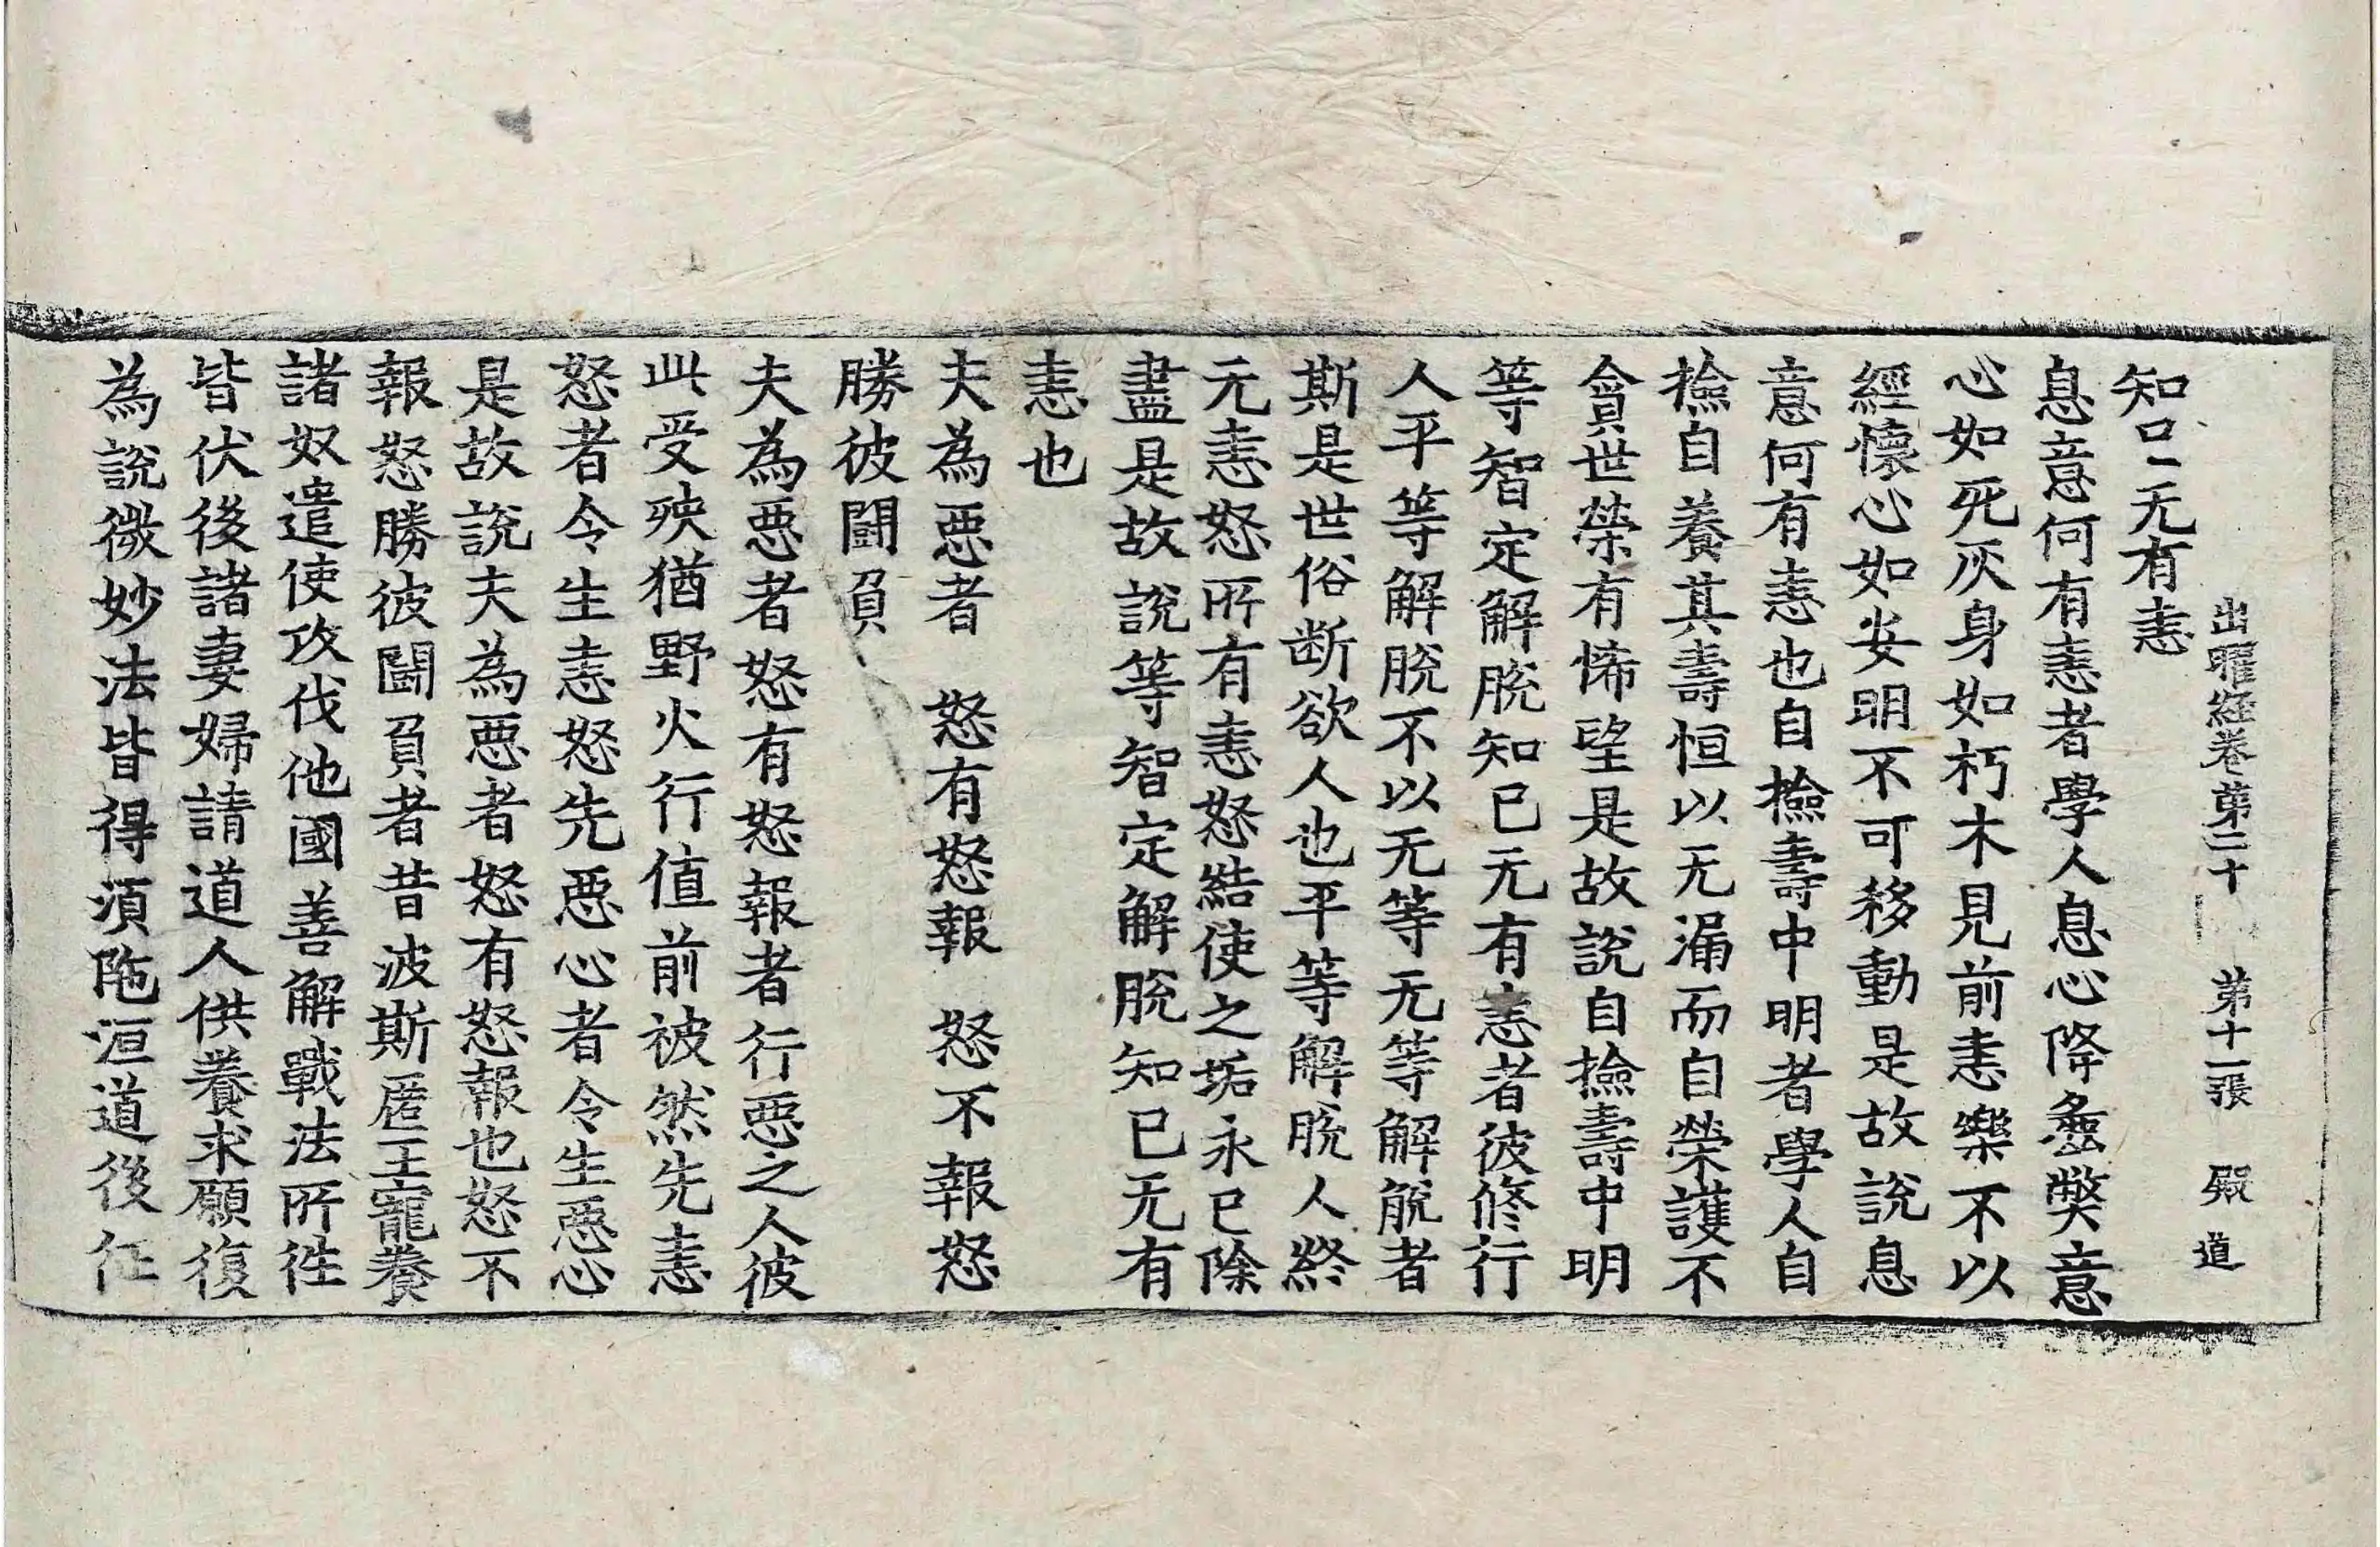 出曜經卷第二十 第十一張 殿 道
知口二无有恚
息意何有恚者學人息心降䗍獘意
心如死灰身如朽木見前恚樂不以
經懷心如安明不可移動是故說息
意何有恚也自撿壽中明者學人自
撿自養其壽恒以无漏而自榮護不
貪世榮有悕望是故說自撿壽中明
等智定解脫知已无有恚者彼修行
人平等解脫不以无等无等解脫者
斯是世俗断欲人也平等解脫人終
无恚怒所有恚怒結使之垢永已除
盡是故說等智定解脫知已无有
恚也
夫為惡者 怒有怒報 怒不報怒
勝彼鬪負
夫為惡者怒有怒報者行惡之人彼
此受殃猶野火行值前被然先恚
怒者令生恚怒先惡心者令生惡心
是故說夫為惡者怒有怒報也怒不
報怒勝彼鬪負者昔波斯匿王寵養
諸奴遣使攻伐他國善解戰法所徃
皆伏後諸妻婦請道人供養求願復
為說微妙法皆得湏陁洹道後征